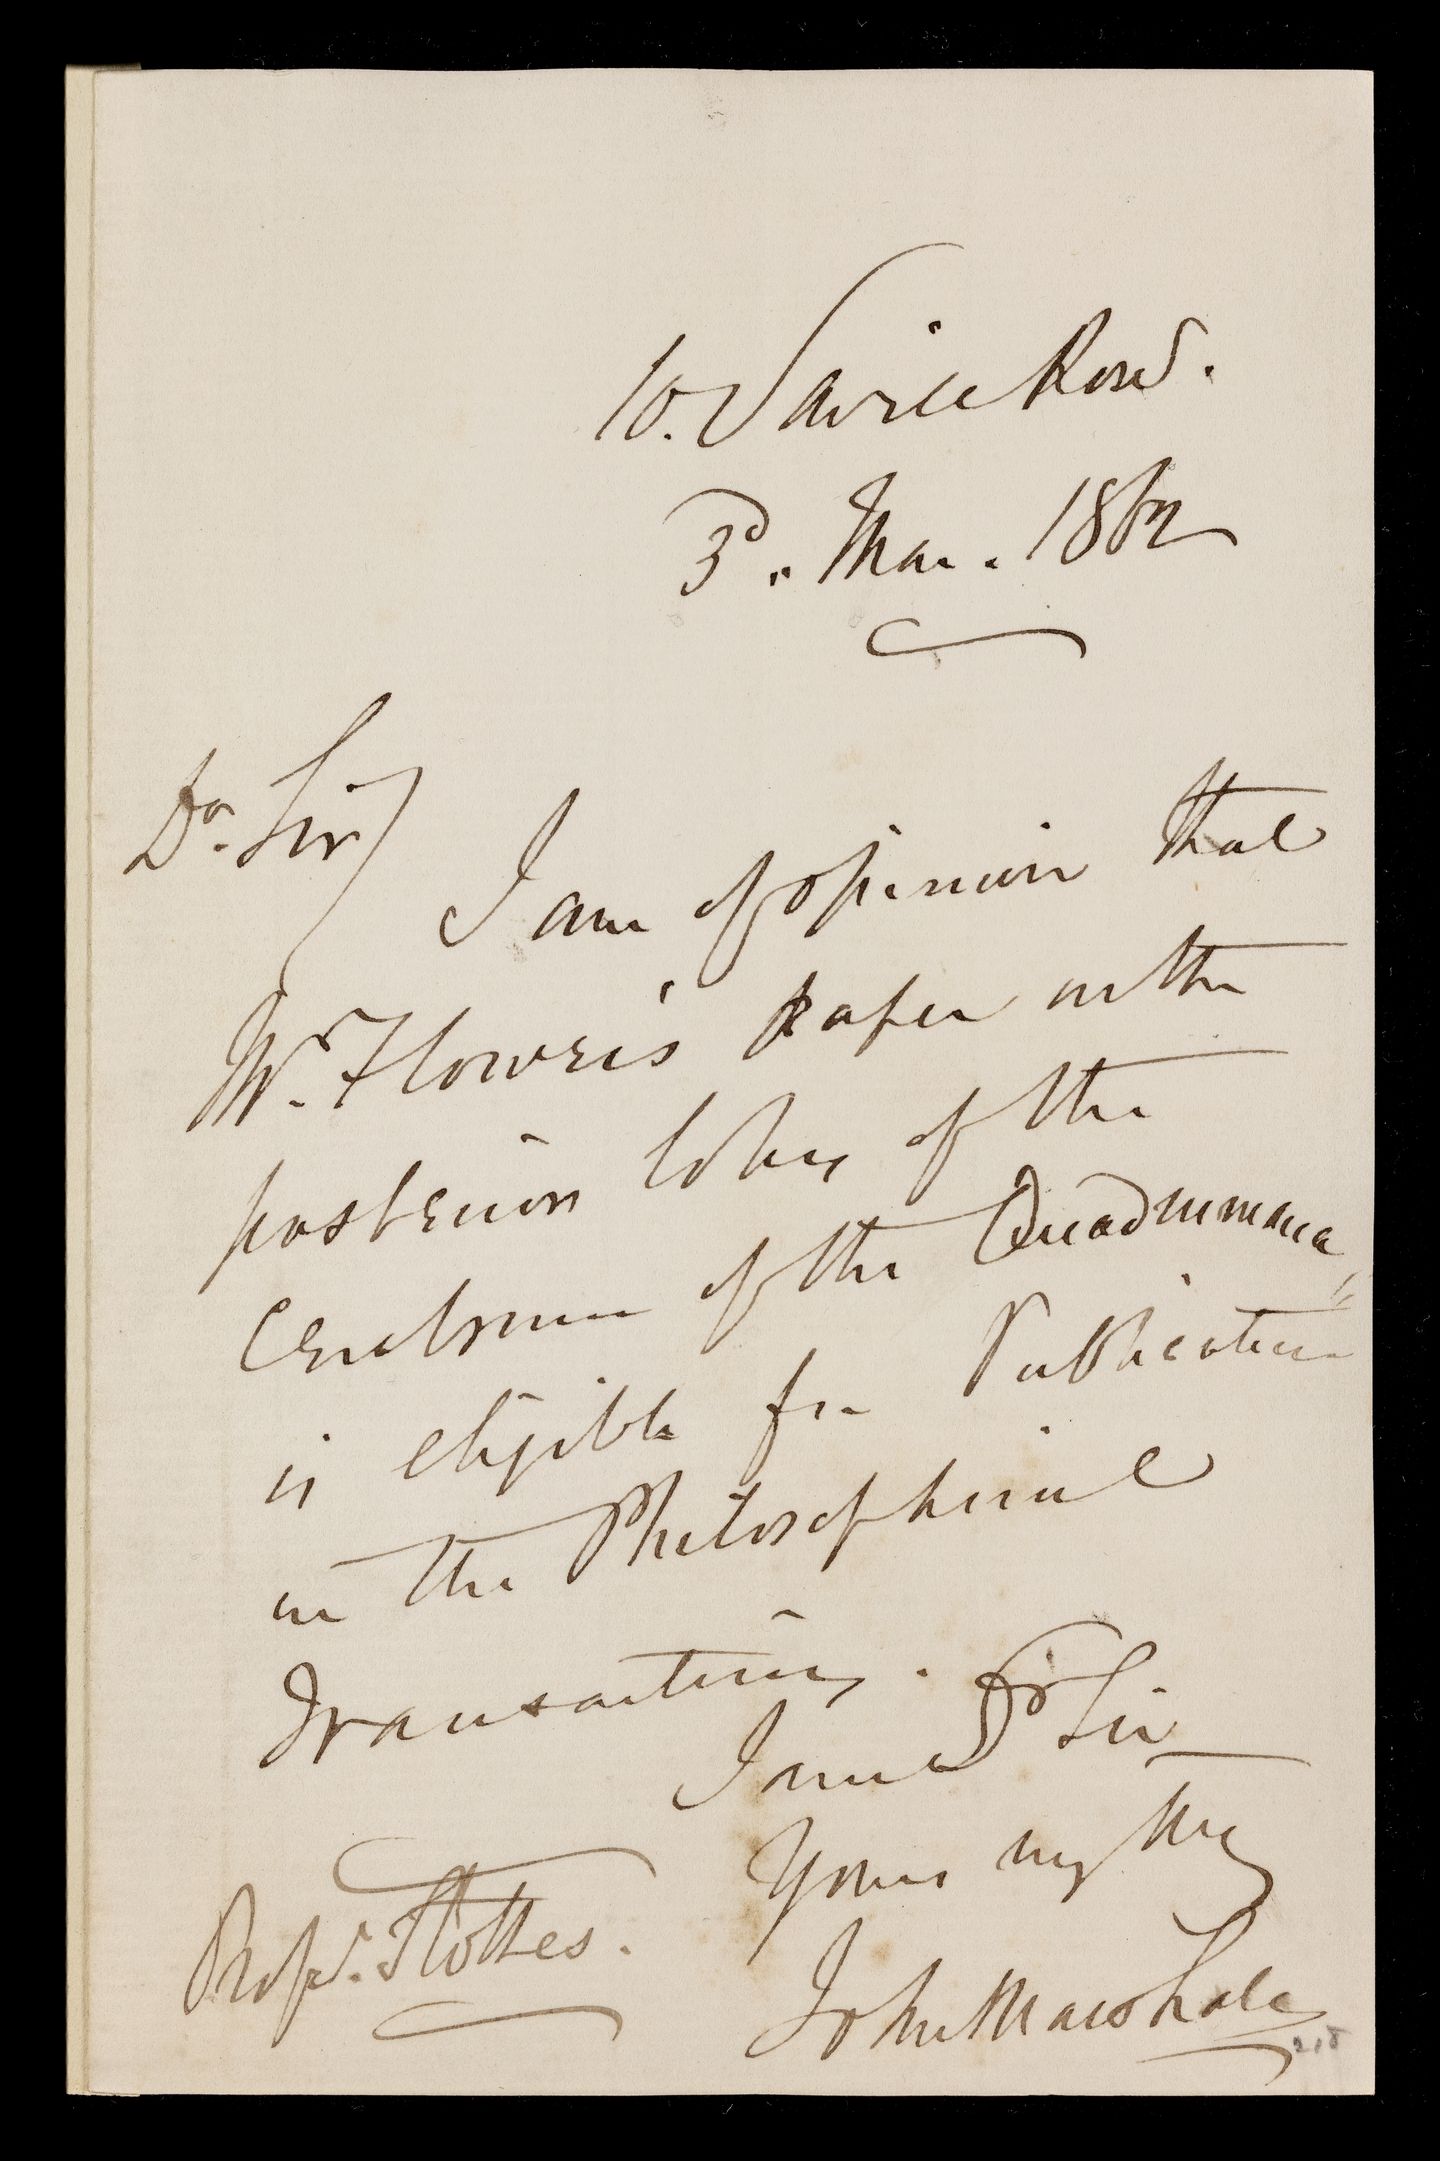 10. Savile Row.
3d. Mar. 1862
Dr. Sir,
I am of opinion that
Mr. Flower's paper on the
posterior lobes of the
Cerebrum of the Quadrumana,
is eligible for Publication
in the Philosophical
Transactions.
I am Dr Sir
Yours my truly
John Marshall
Profr. Stokes.
218